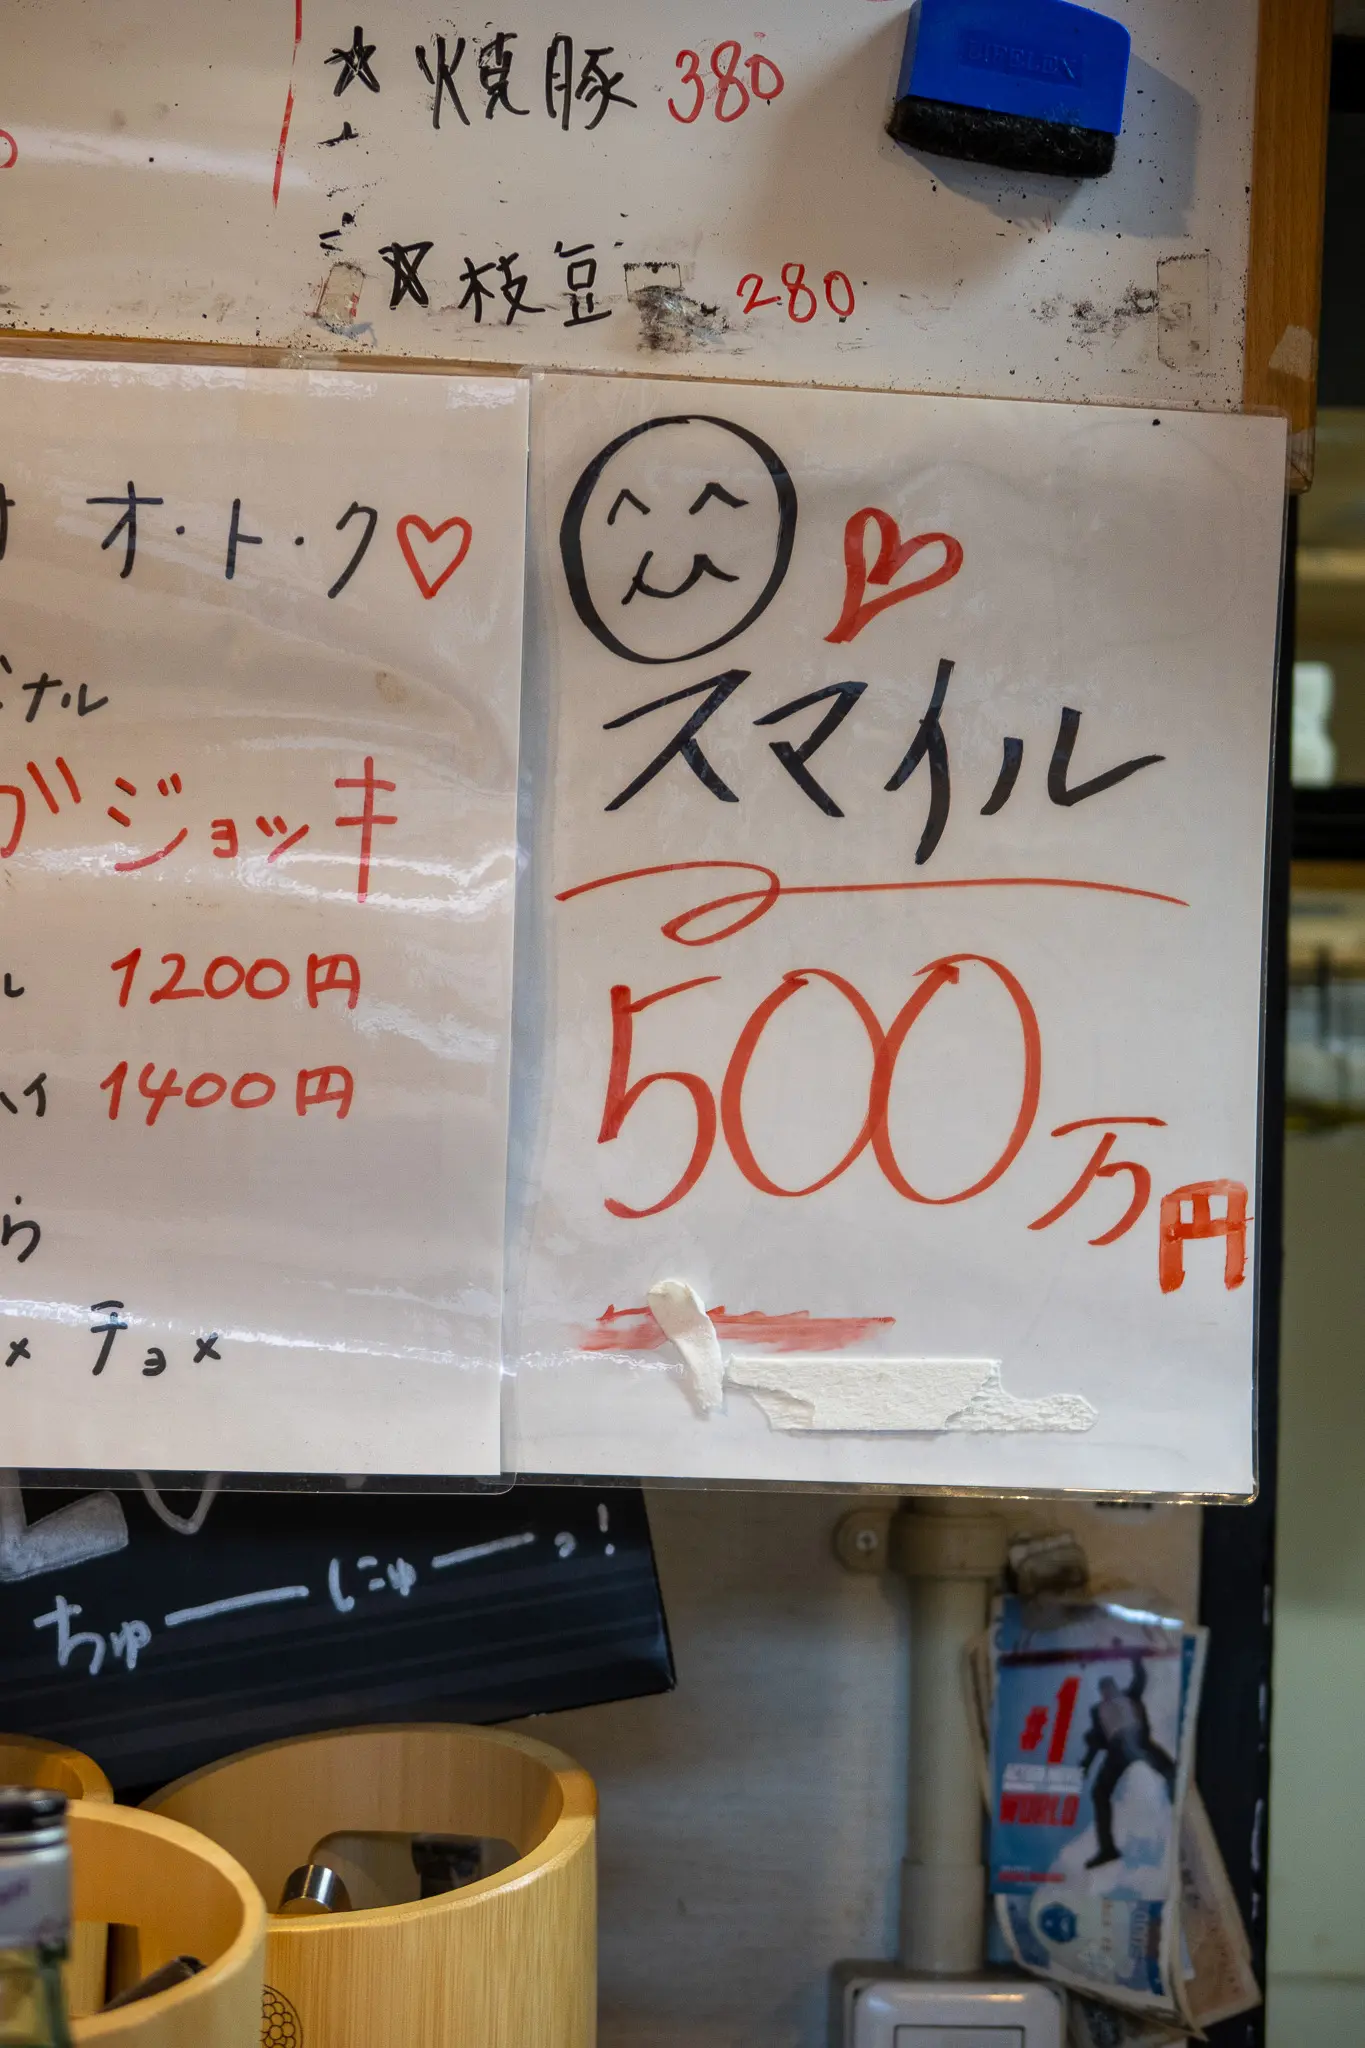 ★ 焼豚 380
★ 枝豆 280
オ・ト・ク♡
ナル
グジョッキ
ル 1200円
ハイ 1400円
ら
× チョメ
スマイル
500万円
ちゅーしにゅーっ!
#1
ACTION MOVIE
WORLD